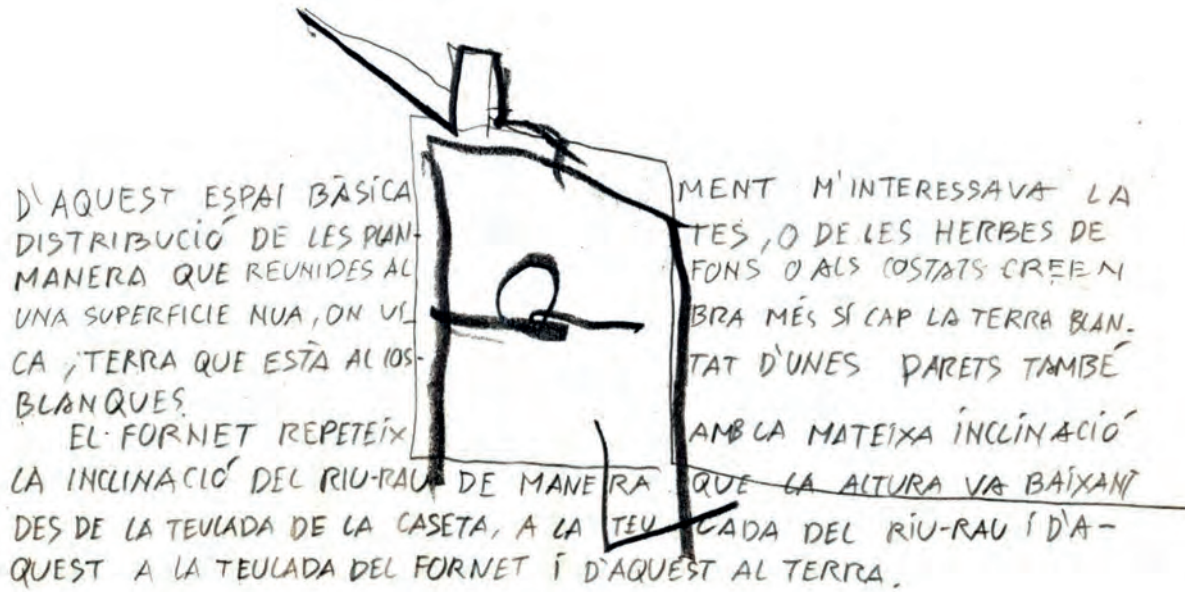 D'AQUEST ESPAI BÀSICAMENT M'INTERESSAVA LA
DISTRIBUCIÓ DE LES PLAN-TES, O DE LES HERBES DE
MANERA QUE REUNIDES AL FONS O ALS COSTATS CREEN
UNA SUPERFICIE NUA, ON VI-BRA MÉS SÍ CAP LA TERRA BLAN-
CA, TERRA QUE ESTÀ AL COS-TAT D'UNES PARETS TAMBÉ
BLANQUES.
EL FORNET REPETEIX AMB LA MATEIXA INCLINACIÓ
LA INCLINACIÓ DEL RIU-RAU DE MANERA QUE LA ALTURA VA BAIXANT
DES DE LA TEULADA DE LA CASETA, A LA TEULADA DEL RIU-RAU I D'A-
QUEST A LA TEULADA DEL FORNET I D'AQUEST AL TERRA.